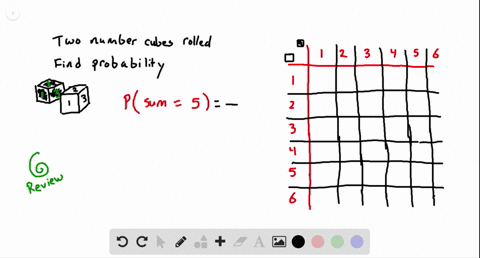 Two number cubes rolled
Find probability
P(sum = 5) = —
1 3
Review
1 2 3 4 5 6
1
2
3
4
5
6
A